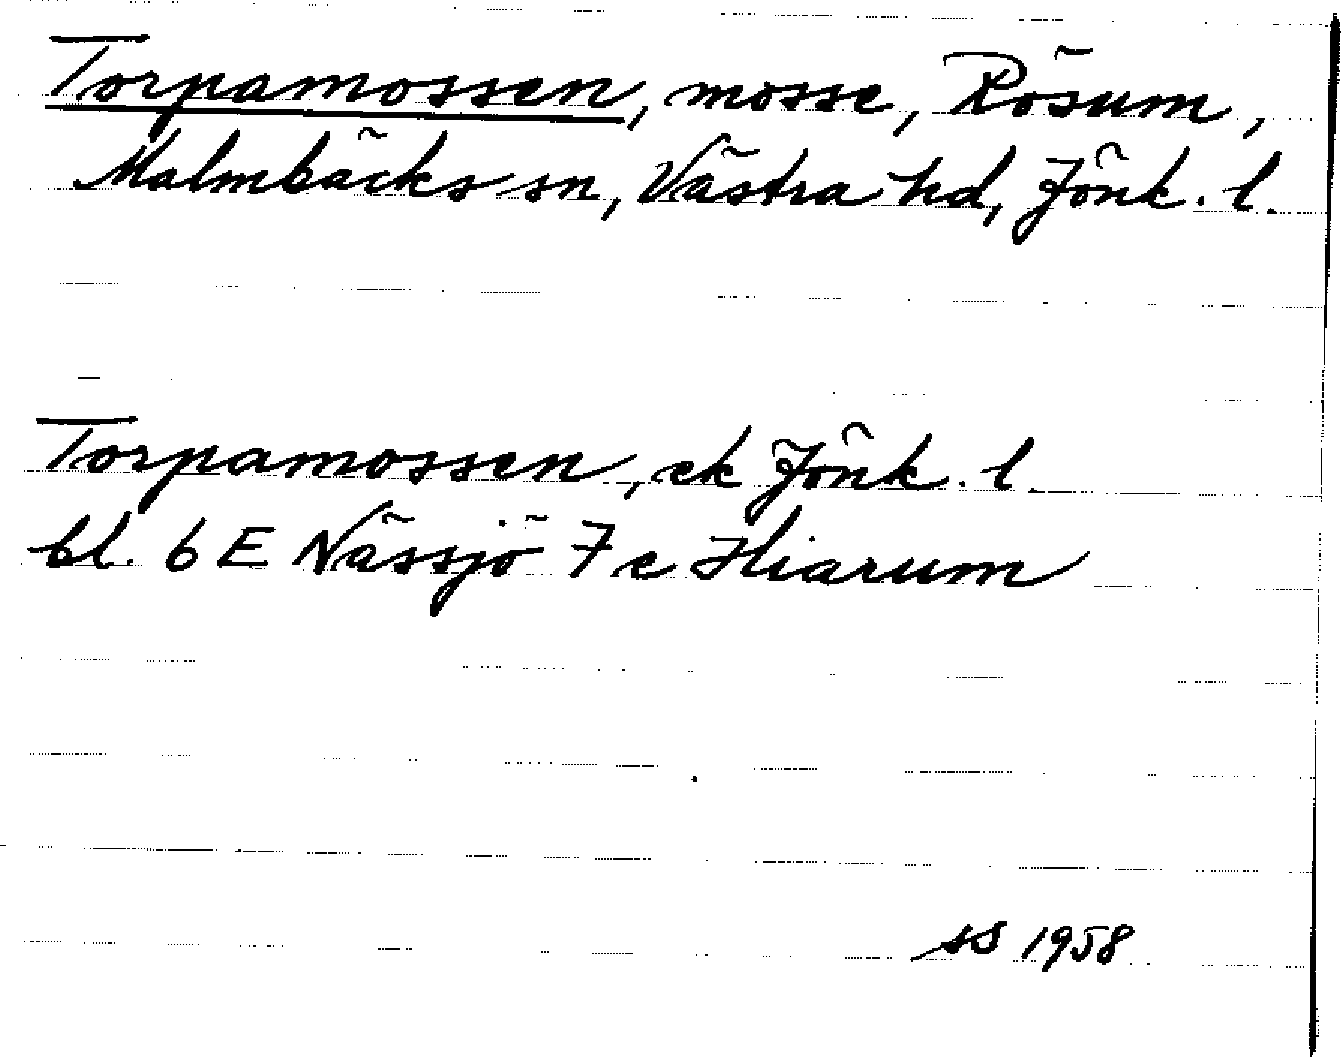 Torpamossen, mosse, Rösum,
Malmbäcks sn, Västra hd, Jönk. l.
Torpamossen, ek Jönk. l.
bl. 6 E Nässjö 7 c Hiarum
SS 1958